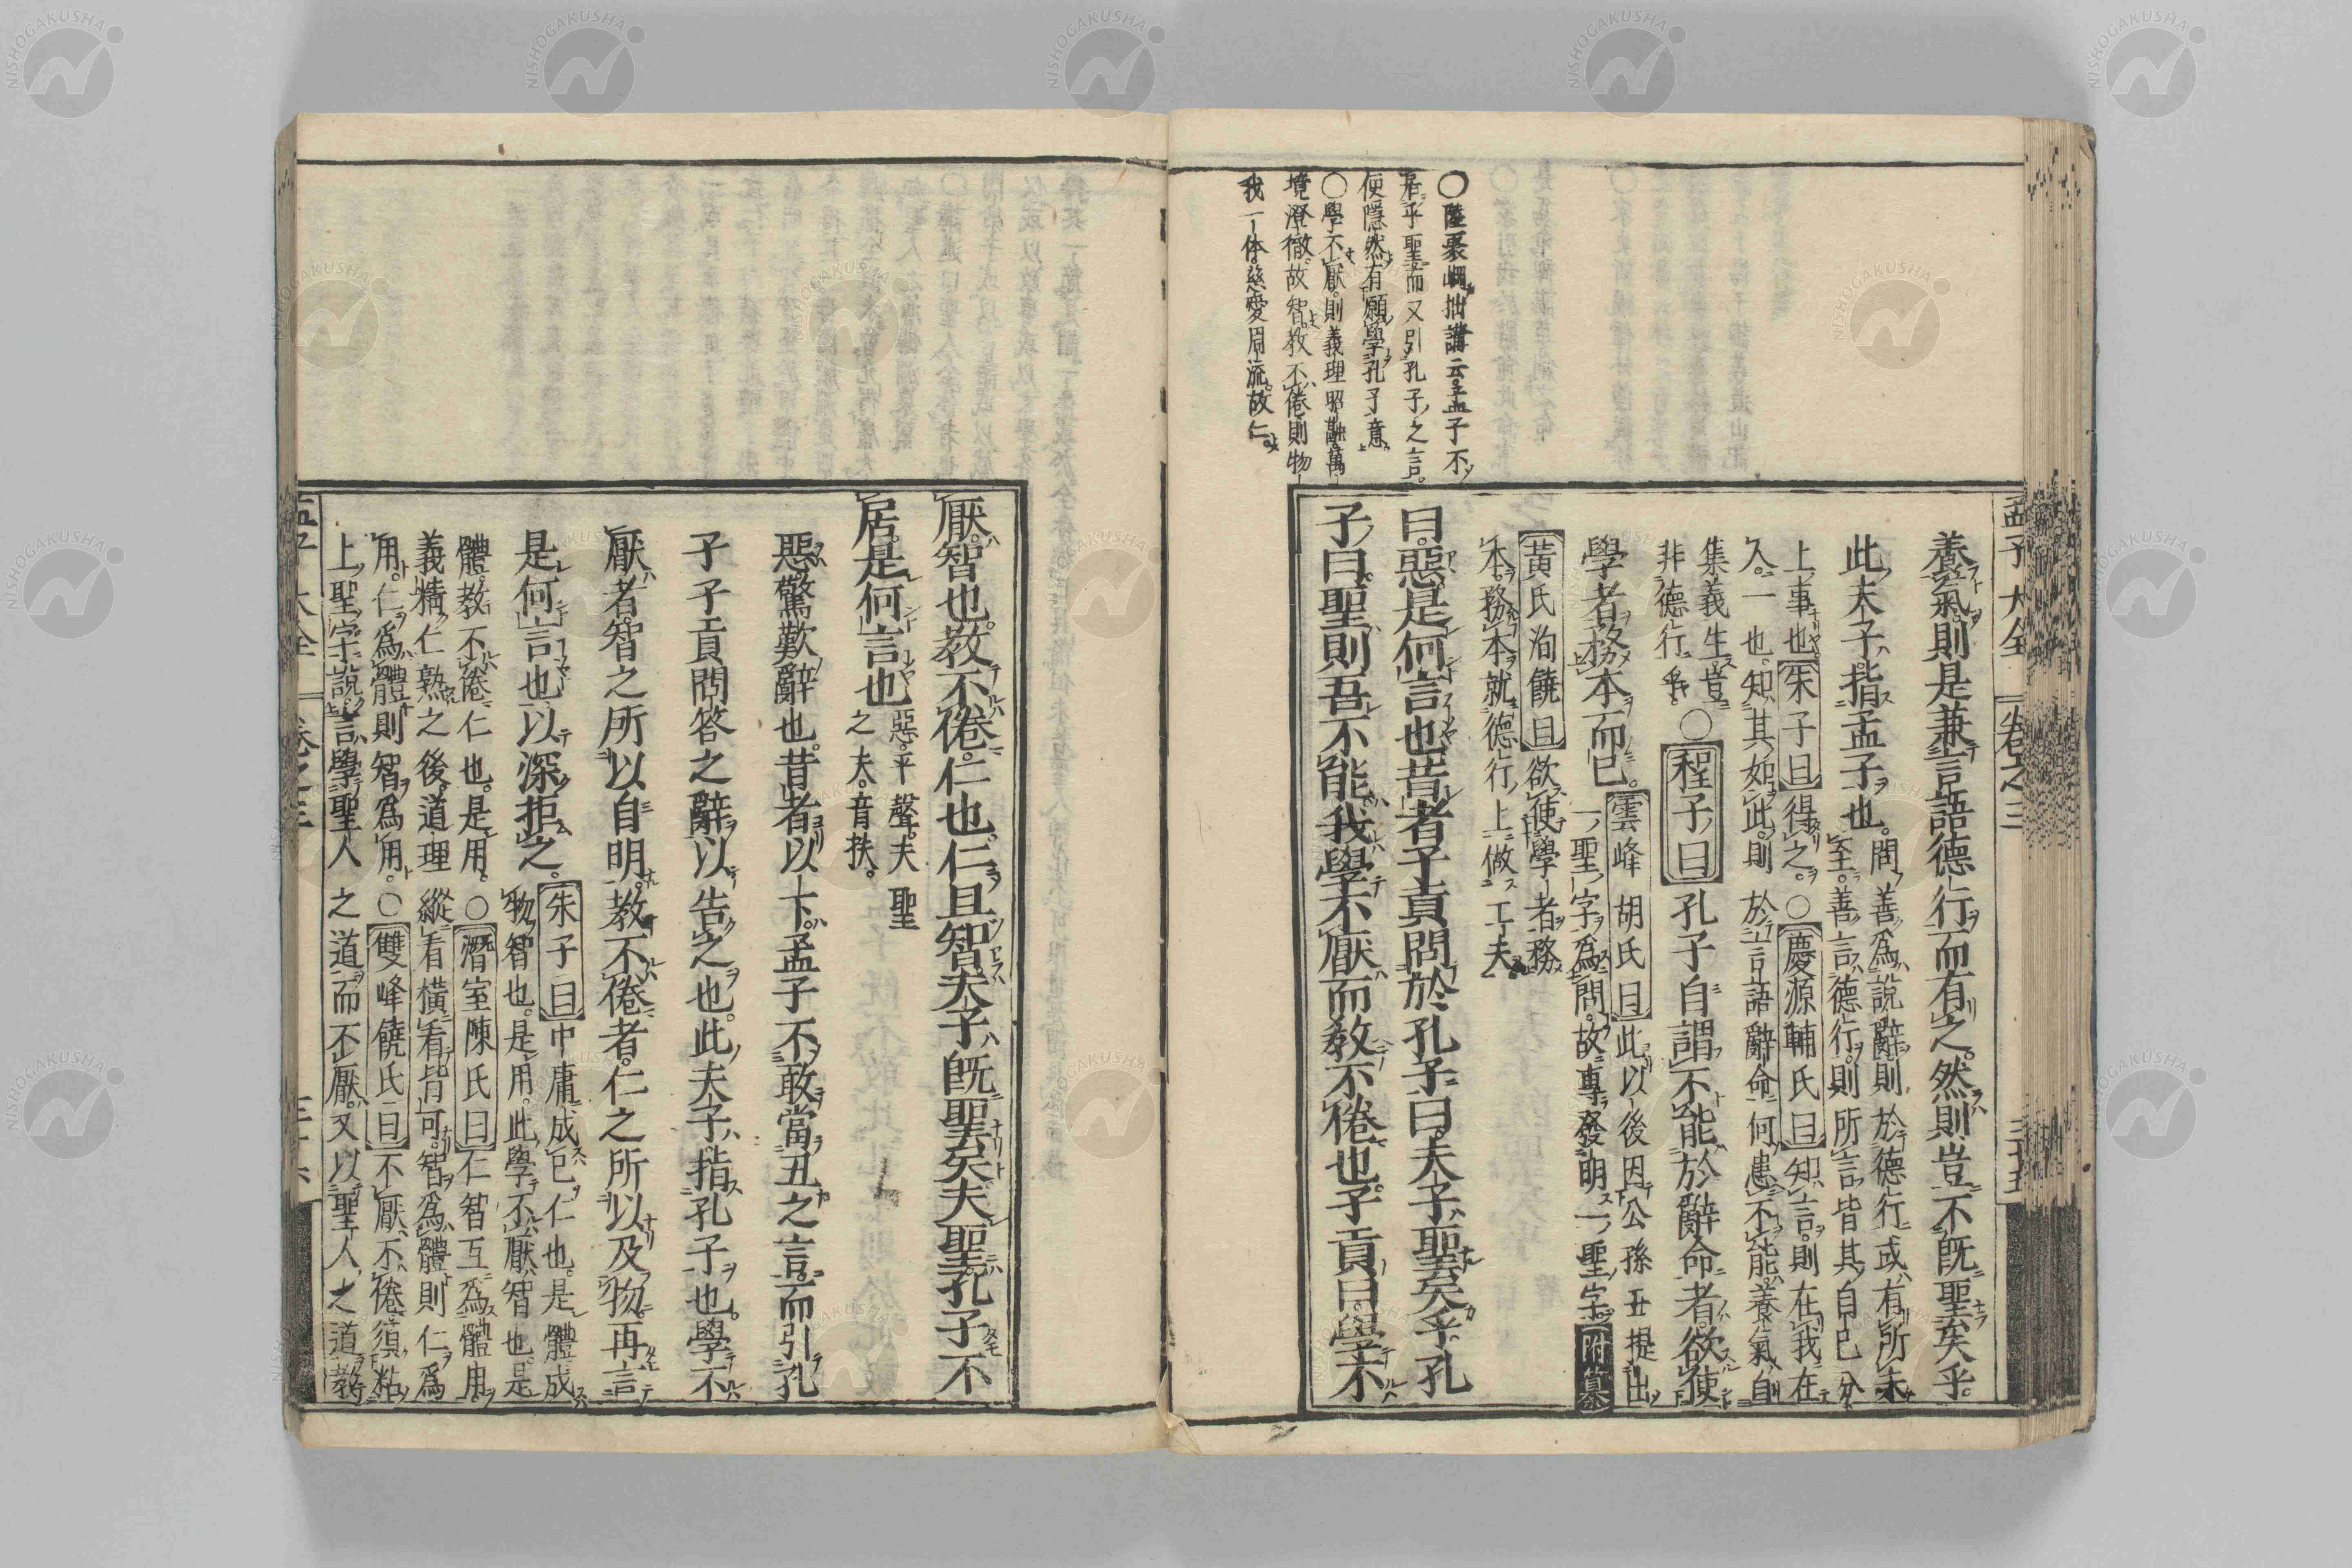 孟子大全 卷之三 三十五
養氣則是兼言語德行而有之然則豈不既聖矣乎
此夫子指孟子也 問善爲說辭則於德行或有所未
至善言德行則所言皆其自己分
上事也朱子曰得之○慶源輔氏曰知言則在我在
人一也知其如此則於言語辭命何患不能養氣自
集義生豈
非德行乎○程子曰孔子自謂不能於辭命者欲使
學者務本而已 雲峰胡氏曰此以後因公孫丑提出
一聖字爲問故專發明一聖字附纂
黃氏洵饒曰欲使學者務
本務本就德行上做工夫
曰惡是何言也昔者子貢問於孔子曰夫子聖矣乎孔
子曰聖則吾不能我學不厭而教不倦也子貢曰學不
○陸聚岡拙講云孟子不
居乎聖而又引孔子之言
便隱然有願學孔子意
○學不厭則義理昭融萬
境澄徹故智教不倦則物
我一体慈愛周流故仁
厭智也教不倦仁也仁且智夫子既聖矣夫聖孔子不
居是何言也 惡平聲夫聖
之夫音扶
惡驚歎辭也昔者以下孟子不敢當丑之言而引孔
子子貢問答之辭以告之也此夫子指孔子也學不
厭者智之所以自明教不倦者仁之所以及物再言
是何言也以深拒之 朱子曰中庸成己仁也是體成
物智也是用此學不厭智也是
體教不倦仁也是用○潛室陳氏曰仁智互爲體用
義精仁熟之後道理縱看橫看皆可智爲體則仁爲
用仁爲體則智爲用○雙峰饒氏曰不厭不倦須粘
上聖字說言學聖人之道而不厭又以聖人之道教
孟子大全 卷之三 三十六
NISHOGAKUSHA